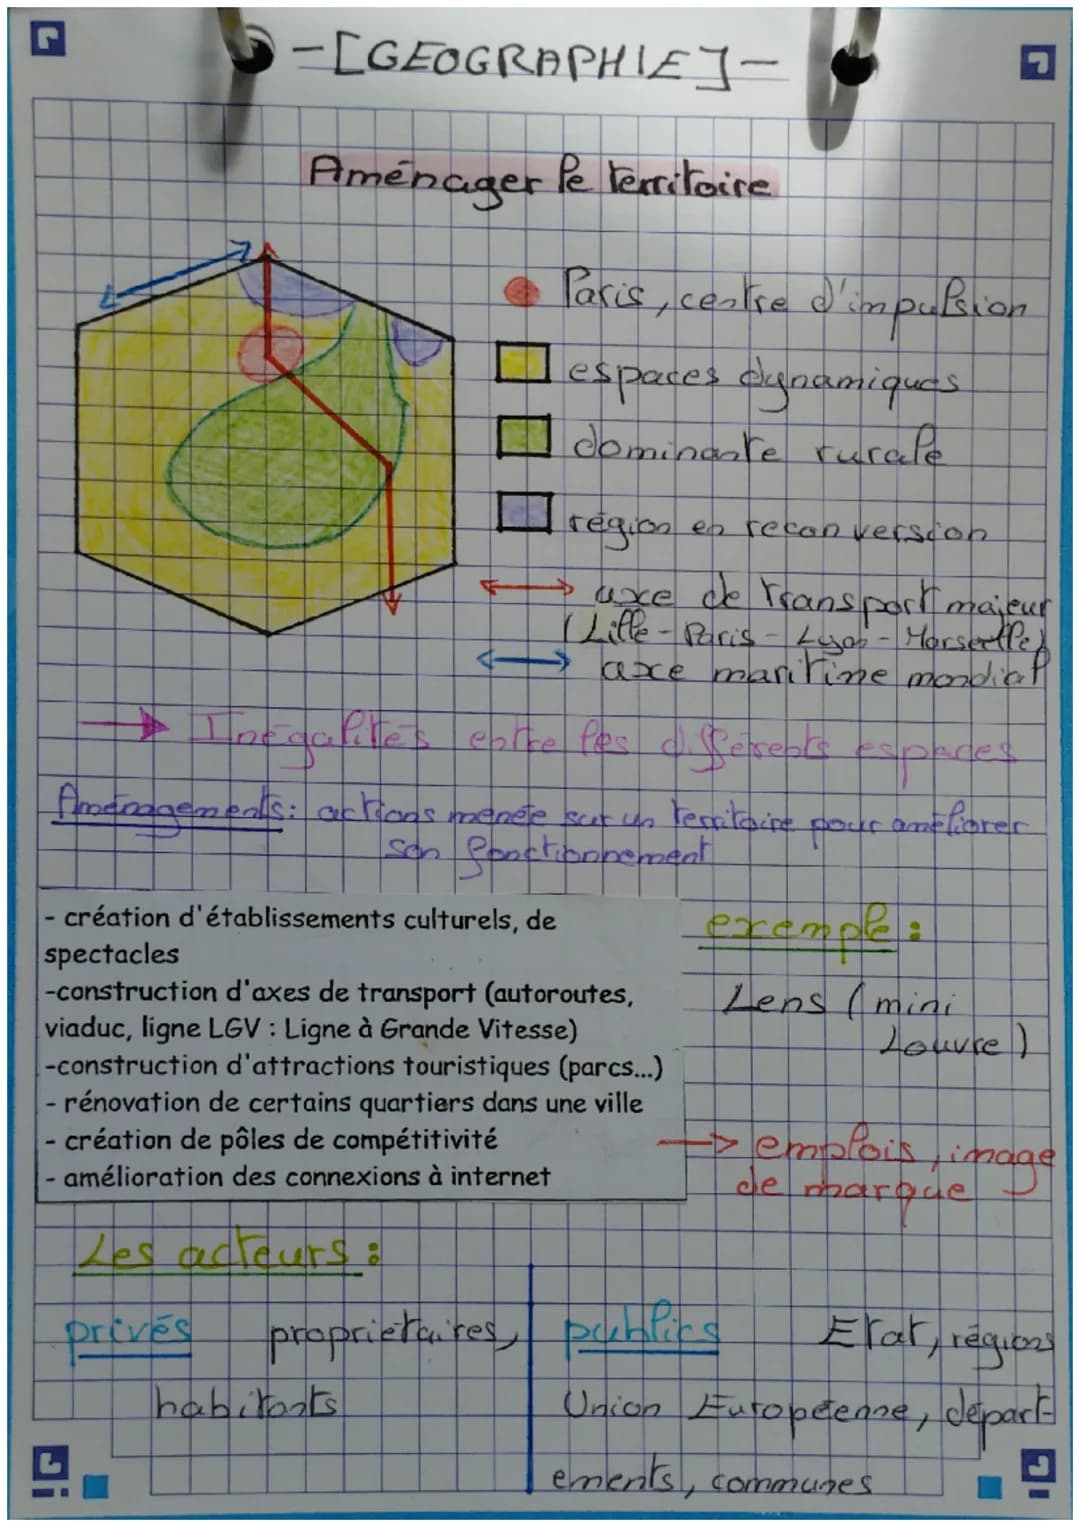 -[GEOGRAPHIE]-
Aménager le territoire
Paris, centre d'impulsion
espaces dynamiques
dominante rurale
région en reconversion
axe de transport majeur
(Lille - Paris - Lyon - Marseille)
axe maritime mondial
→ Inégalités entre les différents espaces
Aménagements: actions menée sur un territoire pour améliorer
son fonctionnement
- création d'établissements culturels, de
spectacles
-construction d'axes de transport (autoroutes,
viaduc, ligne LGV : Ligne à Grande Vitesse)
-construction d'attractions touristiques (parcs...)
- rénovation de certains quartiers dans une ville
- création de pôles de compétitivité
- amélioration des connexions à internet
exemple :
Lens (mini
Louvre)
→ emplois, image
de marque
Les acteurs :
privés propriétaires,
habitants
publics Etat, régions
Union Européenne, départ-
ements, communes